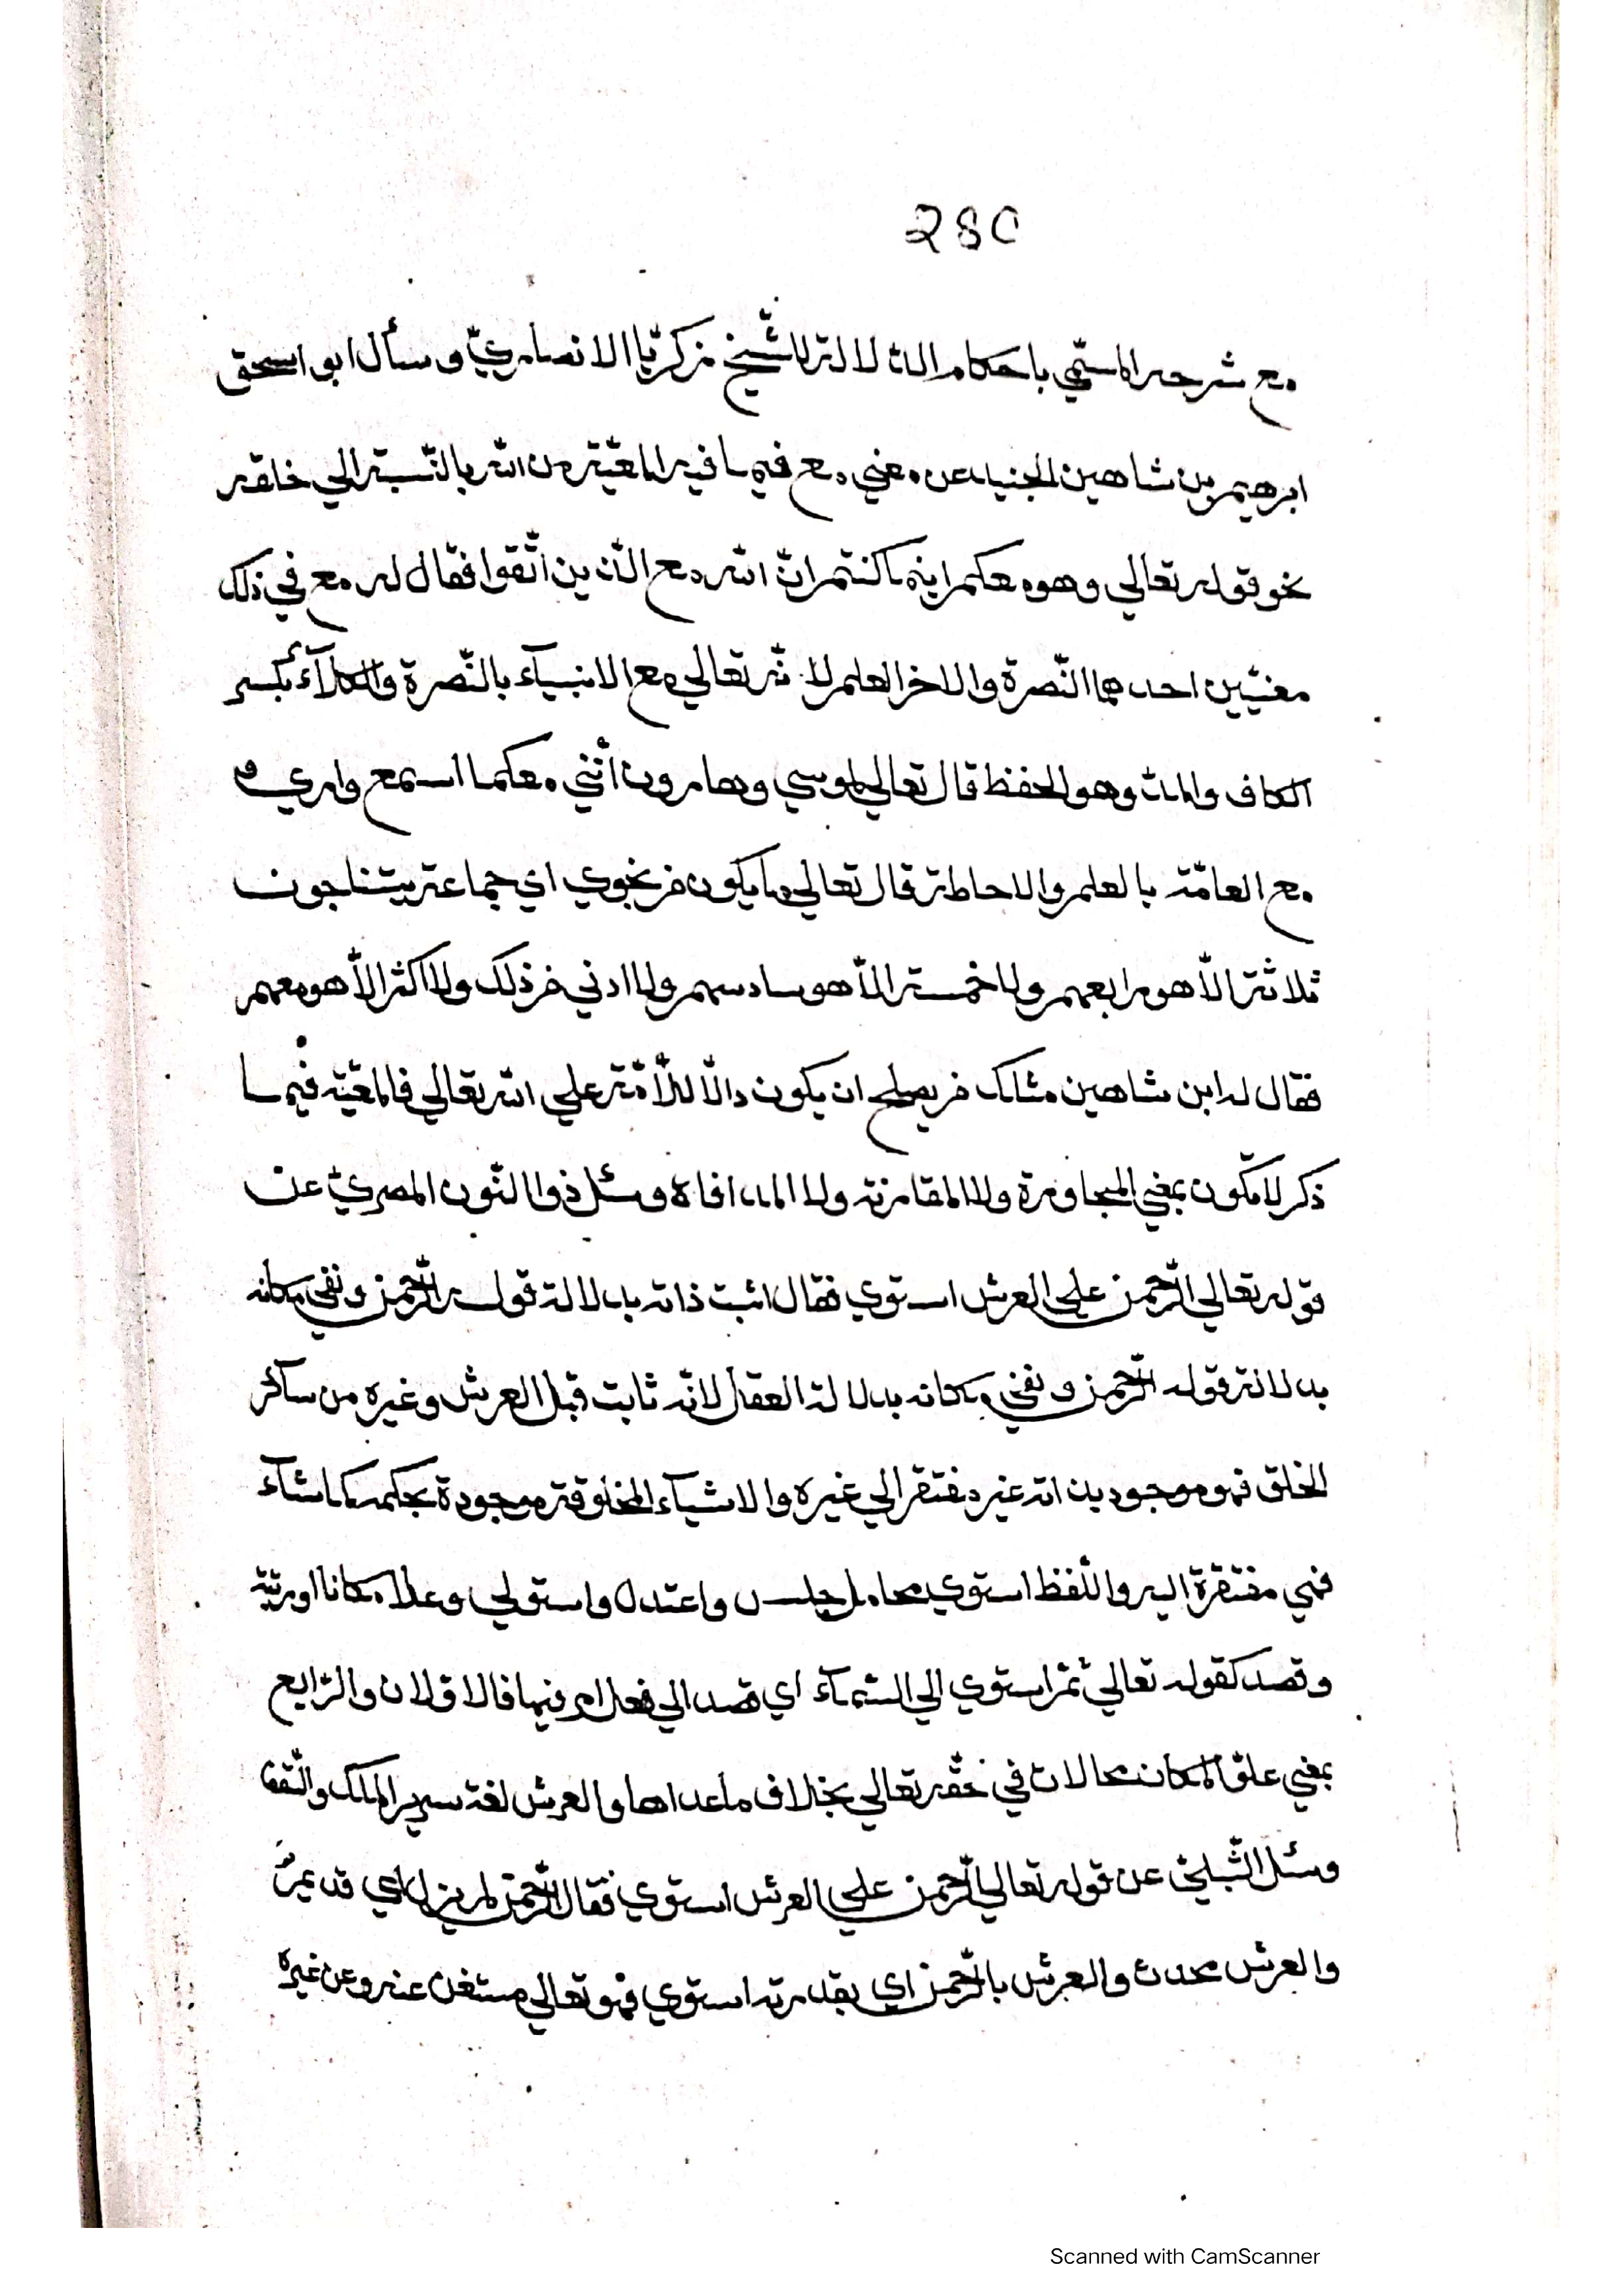 280
مع شرحه المسمّي باحكام الدلالة للشّيخ زكريّا الانصاريّ وسأل ابو اسحق
ابرهيم بن شاهين الجنيد عن معني مع فيما فيه المعيّة من الله بالنّسبة الي خلقه
نحو قوله تعالي وهو معكم اينما كنتم انّ الله مع الّذين اتّقوا فقال له مع في ذلك
معنيين احدهما النّصرة والاخر العلم لانّه تعالي مع الانبيآء بالنّصرة والكلآءة بكسر
الكاف والمدّ وهو الحفظ قال تعالي لموسي وهارون انّني معكما اسمع واري و
مع العامّة بالعلم والاحاطة قال تعالي ما يكون من نجوي اي جماعة يتناجون
ثلاثة الّا هو رابعهم ولا خمسة الّا هو سادسهم ولا ادني من ذلك ولا اكثر الّا هو معهم
فقال له ابن شاهين مثلك من يصلح ان يكون دالّا للأمّة علي الله تعالي فالمعيّة فيما
ذكر لا تكون بمعني المجاورة ولا المقارنة ولا المصافاة وسئل ذوا النّون المصريّ عن
قوله تعالي الرّحمن علي العرش استوي فقال اثبت ذاته بدلالة قوله الرّحمن ونفي مكانه
بدلالة قوله الرّحمن ونفي مكانه بدلالة العقل لانّه ثابت قبل العرش وغيره من سآئر
الخلق فهو موجود بذاته غير مفتقر الي غيره والاشيآء المخلوقة موجودة بحكمه كما شآء
فهي مفتقرة اليه واللّفظ استوي محامل جلس واعتدل واستولي وعلا مكانا او رتبة
وقصد كقوله تعالي ثمّ استوي الي السّمآء اي قصد الي فعل امر فيها فالاوّلان والرّابع
بمعني علوّ المكان محالان في حقّه تعالي بخلاف ما عداها والعرش لغة سرير الملك والسّقف
وسئل الشّبليّ عن قوله تعالي الرّحمن علي العرش استوي فقال الرّحمن لم يزل اي قديمٌ
والعرش محدث والعرش بالرّحمن اي بقدرته استوي فهو تعالي مستغن عنه وعن غيره
Scanned with CamScanner